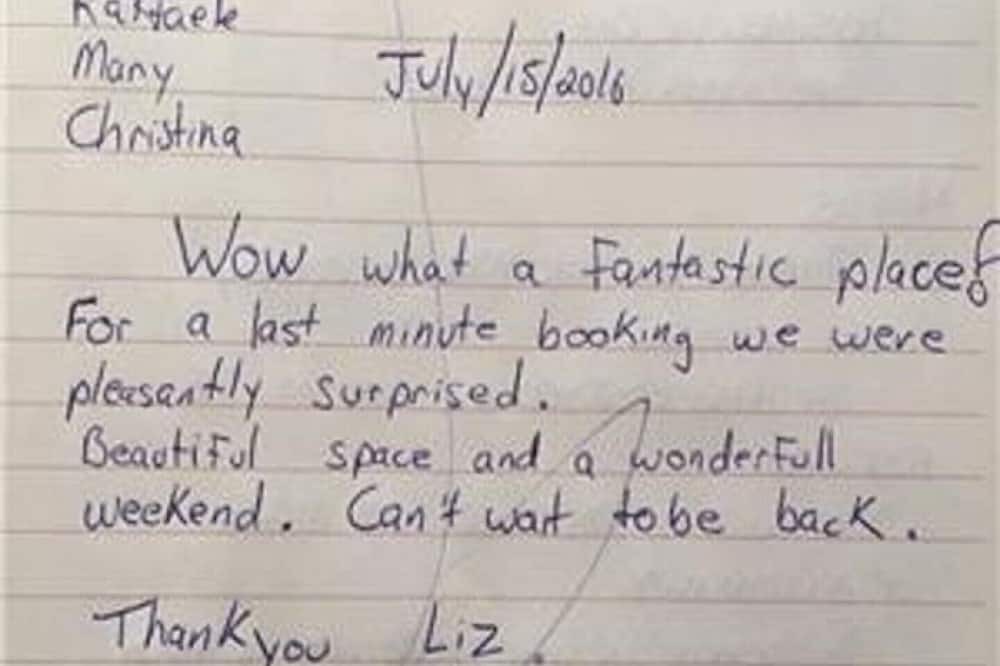 Raffaele
Many July/15/2016
Christina
Wow what a fantastic place!
For a last minute booking we were
pleasantly surprised.
Beautiful space and a wonderfull
weekend. Can't wait to be back.
Thank you Liz.